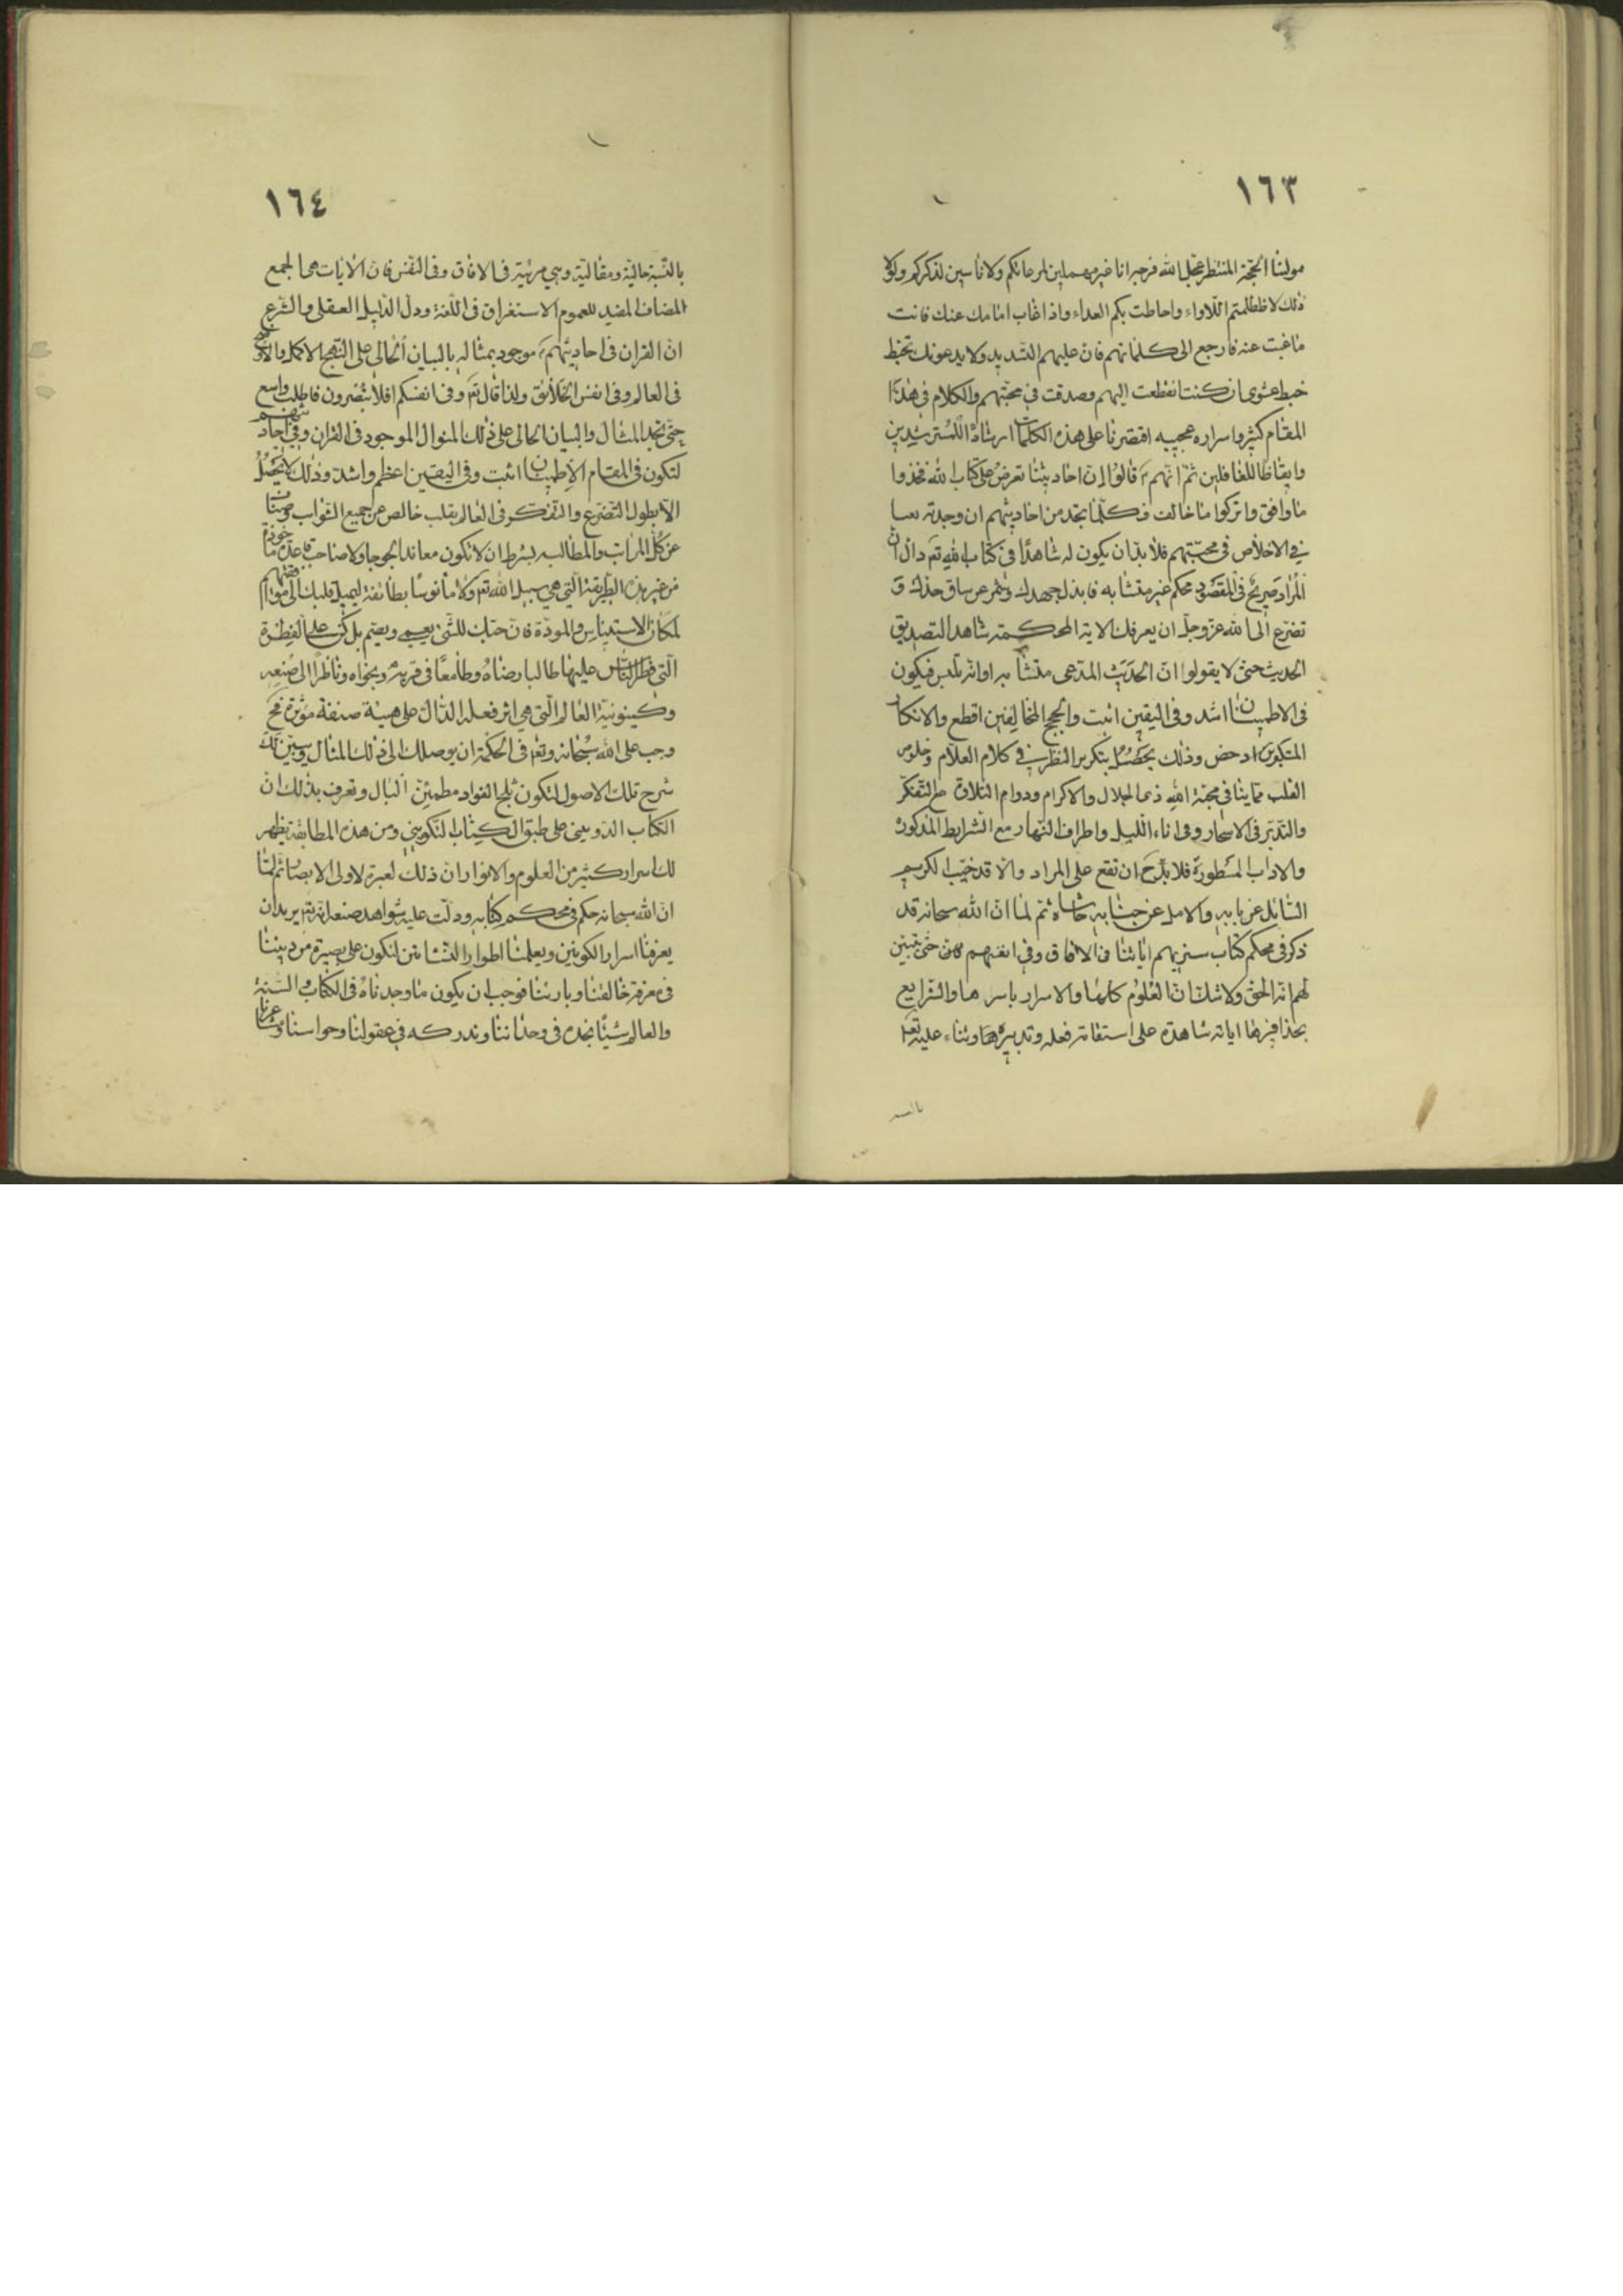 ١٦٣
مولينا الحجة المنتظر عجل الله فرجه انا غير مهملين لمرعاتكم ولا ناسين لذكركم ولولا
ذلك لاظطلمتم اللاواء واحاطت بكم العداء واذا غاب امامك عنك فانت
ما غبت عنه فارجع الى كلماتهم فان عليهم التسديد ولا يدعونك تخبط
خبط عشوى ان كنت انقطعت اليهم وصدقت في محبتهم والكلام في هذا
المقام كثير واسراره عجيبه اقتصرنا على هذه الكلمات ارشادا للمسترشدين
وايقاظا للغافلين ثم انهم ع قالوا ان احاديثنا تعرض على كتاب الله فخذوا
ما وافق واتركوا ما خالف فكلما تجد من احاديثهم ان وجدته
في الاخلاص في محبتهم فلا بد ان يكون له شاهدا في كتاب الله تعم دال ان
المراد صريح في المقصود محكم غير متشابه فابذل جهدك وشمر عن ساق جدك و
تضرع الى الله عز وجل ان يعرفك الاية المحكمة شاهد التصديق
الحديث حتى لا يقولوا ان الحديث المدعى متشابه او انه تلبس فيكون
في الاطمينان اشد وفي اليقين اثبت والحجج المخالفين اقطع والانكار
المتكبرين ادحض وذلك يحصل بتكرير النظر في كلام العلام وخلوص
القلب تفانيا في محبة الله ذي الجلال والاكرام ودوام التلاوة مع التفكر
والتدبر في الاسحار وفي اناء الليل واطراف النهار مع الشرايط المذكورة
والاداب المسطورة فلا بد ح ان تقع على المراد والا قد خيب الكريم
السائل عن بابه والامل عن جنابه حاشاه ثم لما ان الله سبحانه قد
ذكر في محكم كتاب سنريهم اياتنا في الافاق وفي انفسهم حتى يتبين
لهم انه الحق ولا شك ان العلوم كلها والاسرار باسرها والشرايع
بحذافيرها اياته شاهدة على استقامة فعله وتدبيره وثناء عليه تعم
بالنسبة
١٦٤
بالنسبة حالية ومقالية وهي مرئية في الافاق وفي النفس فان الايات هي الجمع
المضاف المفيد للعموم الاستغراق في اللغة ودل الدليل العقلي والشرع
ان القران في احاديثهم ع موجود بمثاله بالبيان الحالي على النهج الاكمل والاوضح
في العالم وفي انفس الخلائق ولذا قال تعم وفي انفسكم افلا تبصرون فاطلب واسع
حتى تجد المثال والبيان الحالي على ذلك المنوال الموجود في القران وفي احاديثهم
لتكون في المقام الاطمينان اثبت وفي اليقين اعظم واشد وذلك لا يحصل
الا بطول التضرع والتفكر في العالم بقلب خالص عن جميع الشوائب
عن كل المراتب والمطالب بشرط ان لا تكون معاندا لجوجا ولا صاحب قاعدة ماخوذة
من غير هذه الطريقة التي هي سبيل الله تعم ولا مأنوسا بطائفة ليميل قلبك الى موافقتهم
لمكان الاستيناس والمودة فان حبك للشئ يعمي ويصم بل كن على الفطرة
التي فطر الناس عليها طالبا رضاه وطامعا في قربه ونجواه وناظرا الى صنعه
وكينونية العالم التي هي اثر فعله الدال على هيئة صنفة مؤثرة فح
وجب على الله سبحانه وتعم في الحكمة ان يوصلك الى ذلك المثال ويبين لك
شرح تلك الاصول لتكون ثلج الفواد مطمئن البال وتعرف بذلك ان
الكتاب التدويني على طبق الكتاب التكويني ومن هذه المطابقة يظهر
لك اسرار كثير من العلوم والانوار ان ذلك لعبرة لاولى الابصار ثم لما
ان الله سبحانه حكم في محكم كتابه ودلت عليه شواهد صنعه انه تعم يريد ان
يعرفنا اسرار الكونين ويعلمنا اطوار النشاتين لنكون على بصيرة من ديننا
في معرفة خالقنا وبارئنا فوجب ان يكون ما وجدناه في الكتاب والسنة
والعالم شيئا نجده في وجداننا وندركه في عقولنا وحواسنا ومشاعرنا